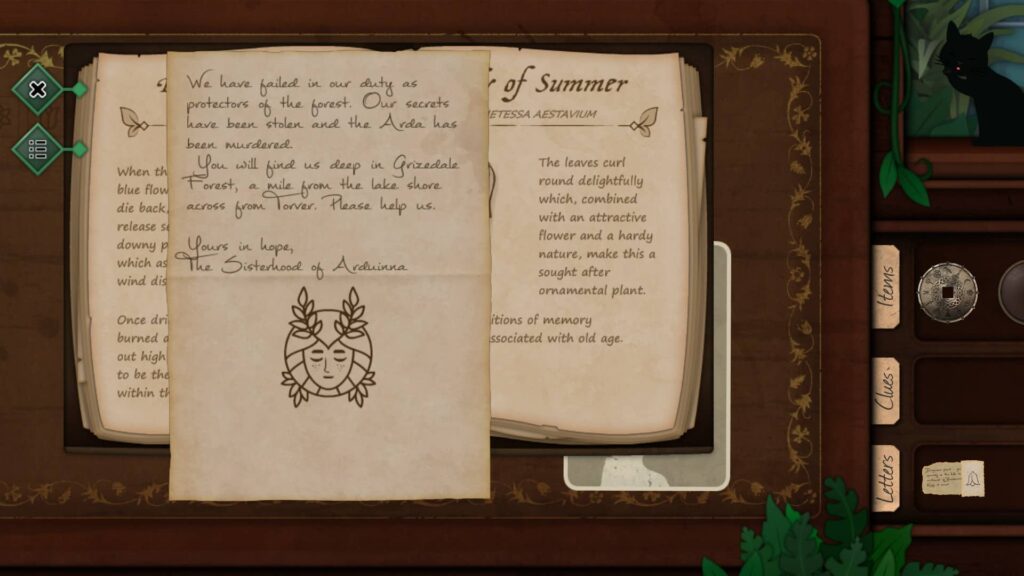 We have failed in our duty as
protectors of the forest. Our secrets
have been stolen and the Arda has
been murdered.
You will find us deep in Grizedale
Forest, a mile from the lake shore
across from Torver. Please help us.
Yours in hope,
The Sisterhood of Arduinna
When th
blue flow
die back,
release se
downy p
which as
wind dis
Once dri
burned a
out high
to be the
within th
of Summer
ETESSA AESTAVIUM
The leaves curl
round delightfully
which, combined
with an attractive
flower and a hardy
nature, make this a
sought after
ornamental plant.
itions of memory
ssociated with old age.
Items
Clues
Letters